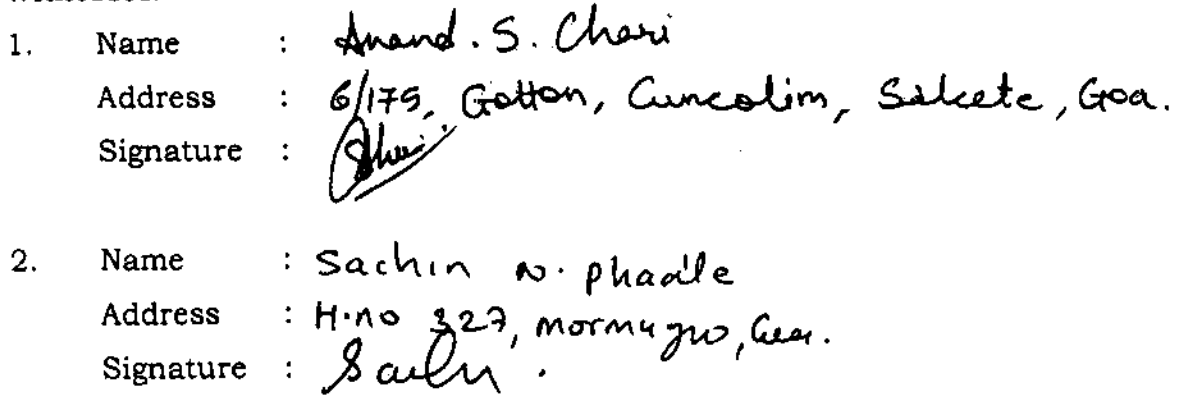 1. Name : Anand. S. Chari
Address : 6/175, Gotton, Cuncolim, Salcete, Goa.
Signature :
2. Name : Sachin N. phadle
Address : H.no 327, mormugao, Goa.
Signature : Sachn.